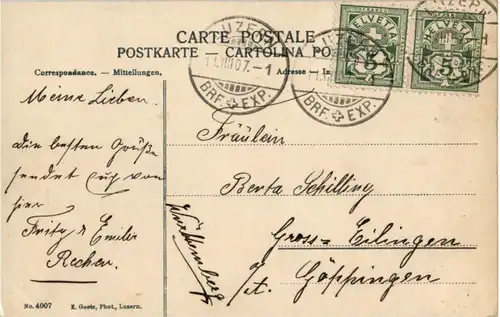 CARTE POSTALE
POSTKARTE - CARTOLINA PO
Correspondance. - Mitteilungen.
Adresse
LUZERN
11.VIII 07.-1
BRF. EXP.
LUZERN
BRF. EXP.
LUZERN
HELVETIA
5
HELVETIA
5
Meine Lieben.
Die besten Grüße
sendet Euch von
hier
Fritz & Emilie
Fräulein
Berta Schilling
Gross-Eilingen
o/t. Göppingen
Württemberg
No. 4007
E. Goetz, Phot., Luzern.